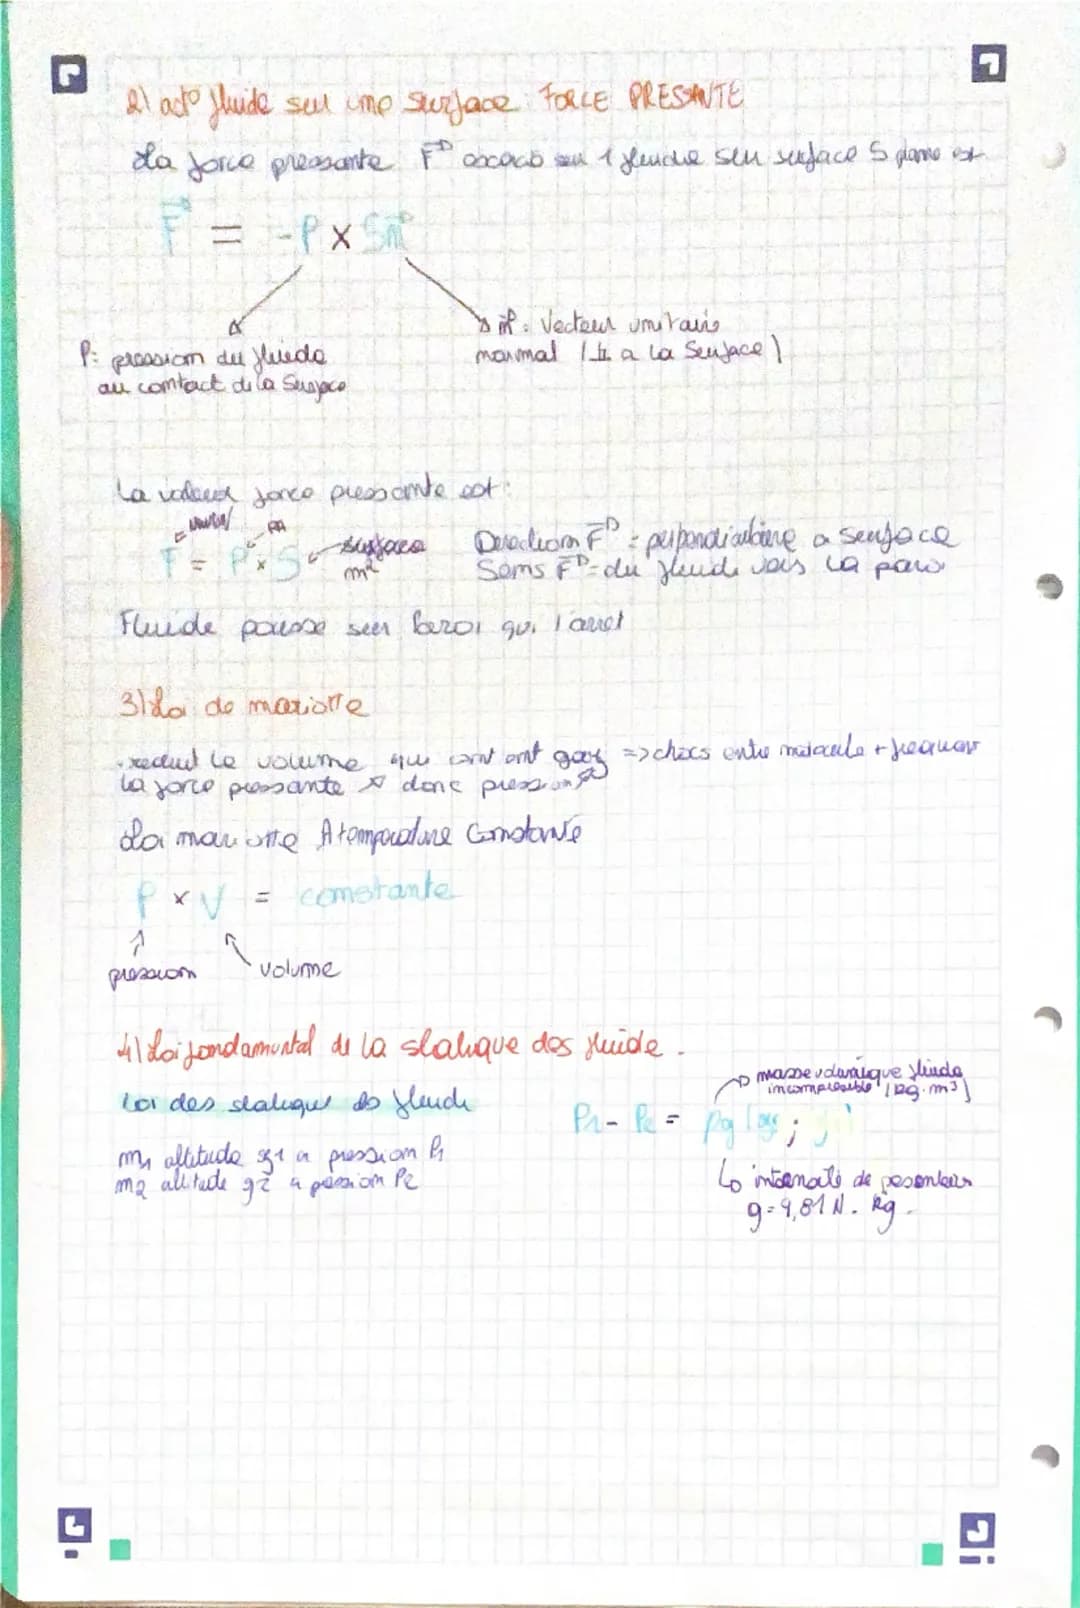 2) act° fluide sur une surface FORCE PRESSANTE
La force pressante F sur 1 fluide sur surface S plane est
F = -P x Sn
n : Vecteur unitaire
P: pression du fluide
normal (⊥ a la Surface)
au contact de la Surface
La valeur force pressante est :
Pa
F = P x S surface
m²
Direction F : perpendiculaire a surface
Sens F = du fluide vers la paroi
Fluide pousse sur paroi qui l'arret
3) Loi de mariotte
reduit le volume gaz => chocs entre molecule +
la force pressante ↗ donc pression ↗
Loi mariotte A temperature Constante
P x V = constante
pression
volume
4) Loi fondamental de la statique des fluide.
masse volumique fluide
incompressible (kg.m³)
Loi des statique des fluide
P1 - P2 = ρg
m1 altitude z1 a pression P1
m2 altitude a pression P2
intensité de pesanteur
g = 9,81 N. kg